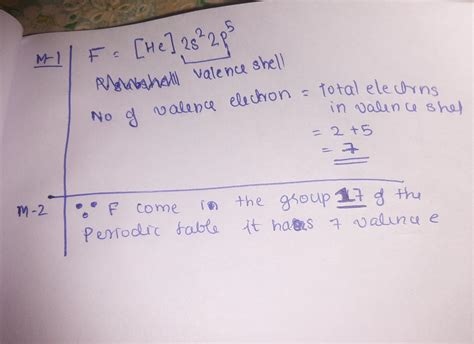 M-1 F = [He] 2s² 2p⁵
valence shell
No of valence electron = total electrns
in valence shel
= 2 + 5
= 7
M-2 ∵ F come in the group 17 of the
Periodic table it has 7 valence e